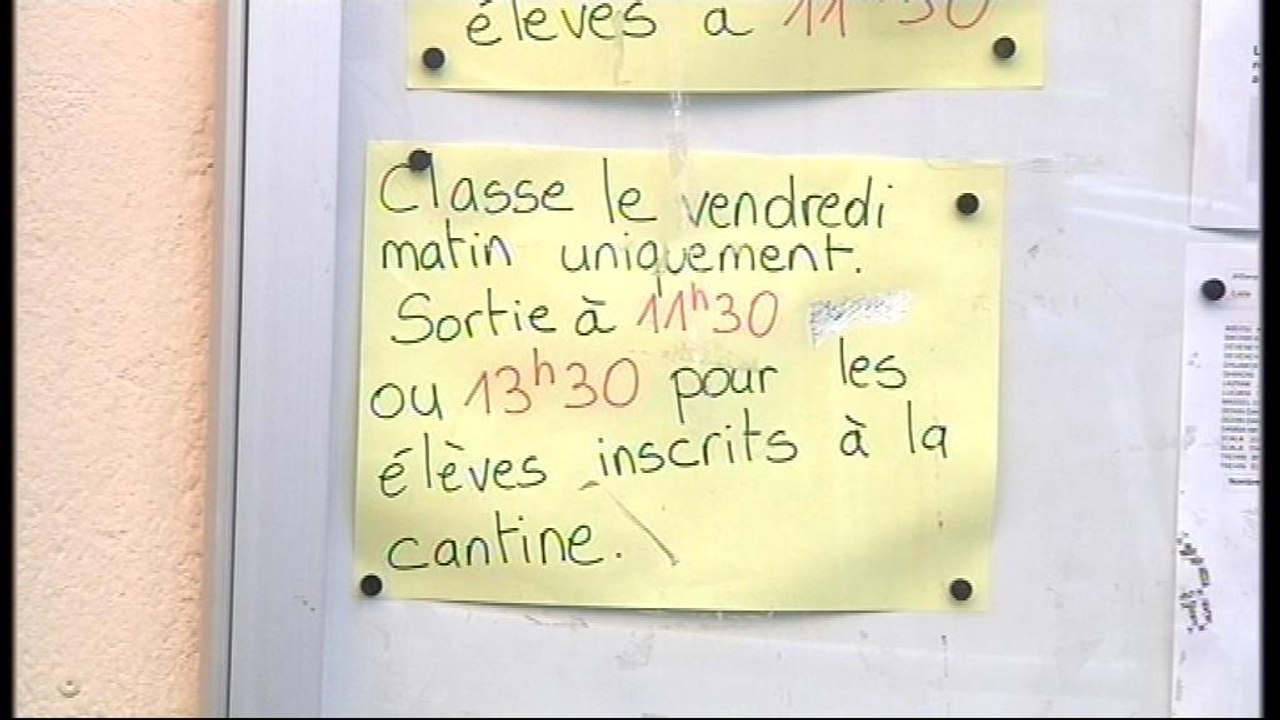 élèves à 11h30
Classe le vendredi
matin uniquement.
Sortie à 11h30
ou 13h30 pour les
élèves inscrits à la
cantine.